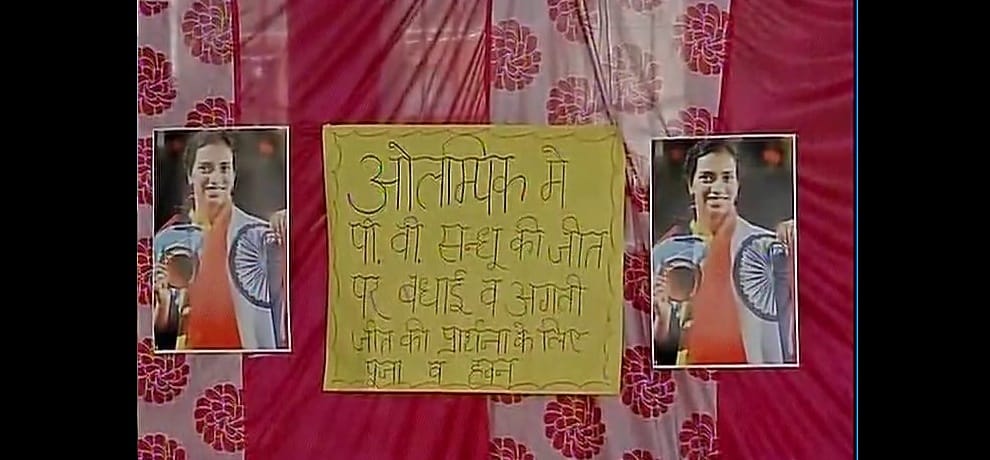 ओलम्पिक मे
पी. वी. सन्धू की जीत
पर बधाई व अगली
जीत की प्रार्थना के लिए
पूजा व हवन